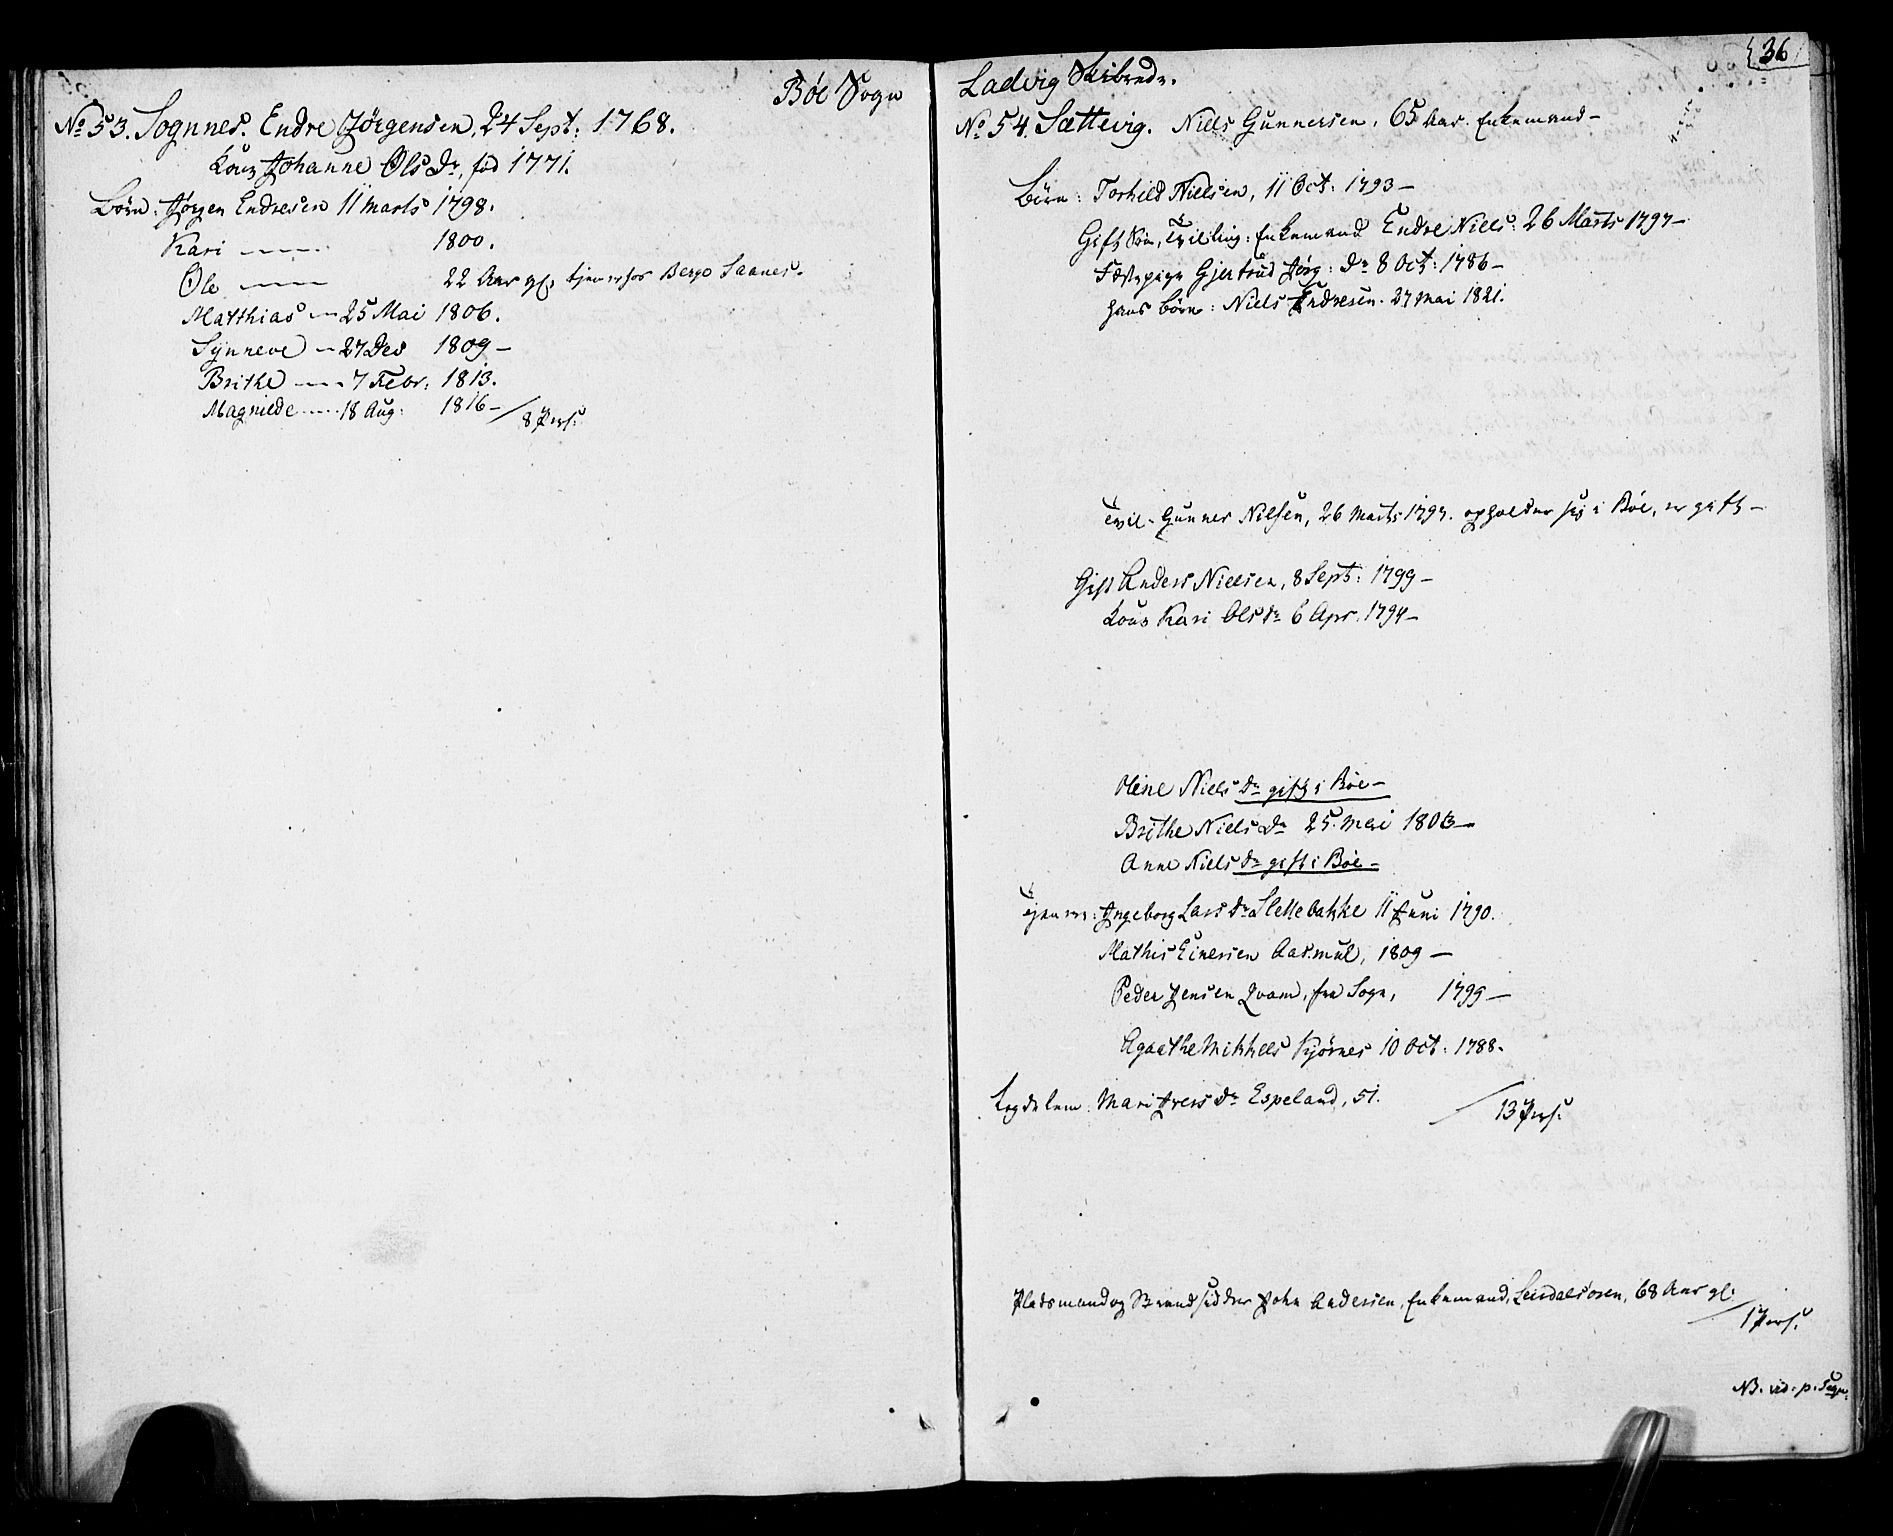 Bøe Sogn
No 53. Sognnes. Endre Jørgensen, 24 Sept: 1768.
Kone Johanne Ols Dr, fød 1771.
Børn: Jørgen Endresen 11 Marts 1798.
Kari 1800.
Ole 22 Aar gl. tjener hos Berge Saanes.
Matthias 25 Mai 1806.
Synneve 27 Des 1809 –
Brithe 7 Febr: 1813.
Magnilde 18 Aug: 1816 –
8 Pers:
36
Ladvig Skibrede.
No 54. Sættevig. Niels Gunnersen, 65 Aar. Enkemand –
Børn: Torkild Nielsen, 11 Oct: 1793 –
Gift Søn, Tvilling: Enkemand Endre Niels: 26 Marts 1797 –
Fæstepige Gjertrud Jørg: Dr 8 Oct: 1786 –
hans børn: Niels Endresen. 27 Mai 1821.
Tvil: Gunner Nilsen, 26 Marts 1797. opholder sig i Bøe, er gift –
Gift Anders Nielsen, 8 Sept: 1799 –
Kone Kari Ols dr 6 Apr. 1794 –
Oline Niels dr gift i Bøe –
Brithe Niels Dr 25. Mai 1803 –
Anne Niels dr gift i Bøe –
Tjenere: Ingeborg Lars dr Slettebakke 11 Juni 1790.
Mathis Einersen Aasmul, 1809 –
Peder Jensen Qvam, fra Sogn, 1799 –
Agaathe Mikkels Kjørnes 10 Oct: 1788.
Lægdslem: Mari Ivers dr Espeland, 51.
13 Pers:
Pladsmand og Strandsidder John Andersen, Enkemand, Leirdalsøren, 68 Aar gl:
1 Pers:
NB. vid. p.